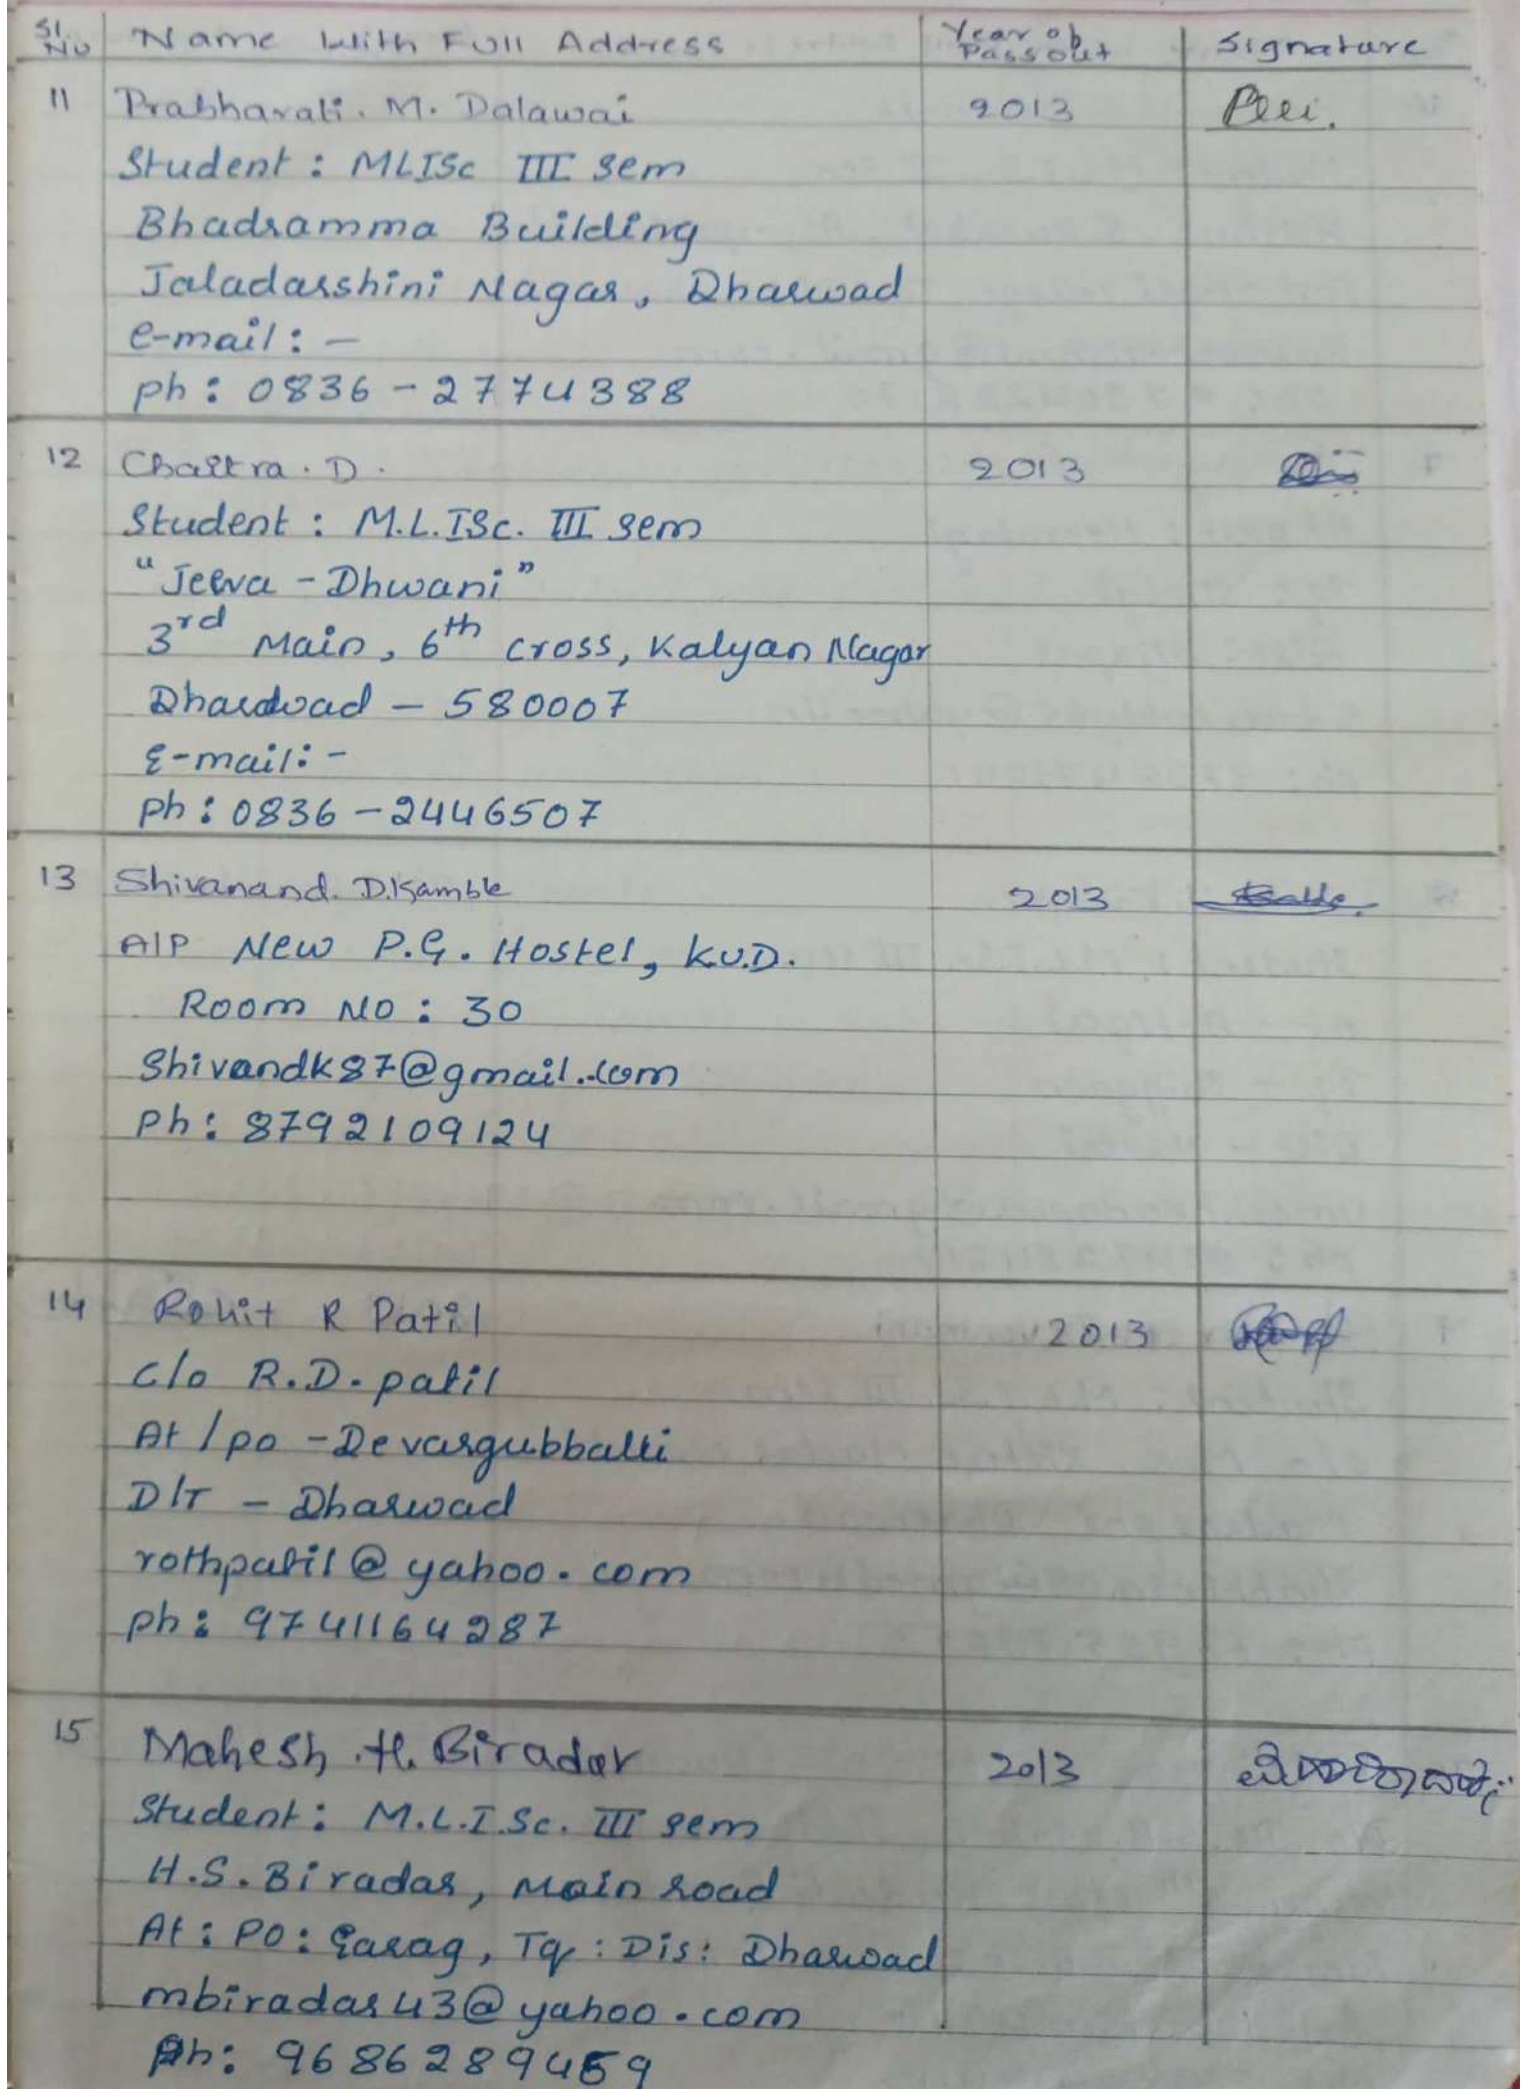 Sl. No Name With Full Address Year of Passout Signature
11 Prabhavati. M. Dalawai 2013
Student : MLISc III sem
Bhadramma Building
Jaladarshini Nagar, Dharwad
e-mail : -
ph : 0836 - 2774388
12 Chaitra . D . 2013
Student : M.L.ISc. III sem
"Jeeva - Dhwani"
3rd Main, 6th cross, Kalyan Nagar
Dharwad - 580007
E-mail : -
Ph : 0836 - 2446507
13 Shivanand. D. Kamble 2013
A/P New P.G. Hostel, K.U.D.
Room No : 30
Shivandk87@gmail.com
Ph : 8792109124
14 Rohit R Patil 2013
C/o R.D. patil
At / po - Devargubballi
D/T - Dharwad
rothpatil@yahoo.com
ph : 9741164287
15 Mahesh .H. Biradar 2013
Student : M.L.I.Sc. III sem
H.S. Biradar, Main road
At : PO : Garag, Tq : Dis : Dharwad
mbiradar43@yahoo.com
Ph : 9686289459